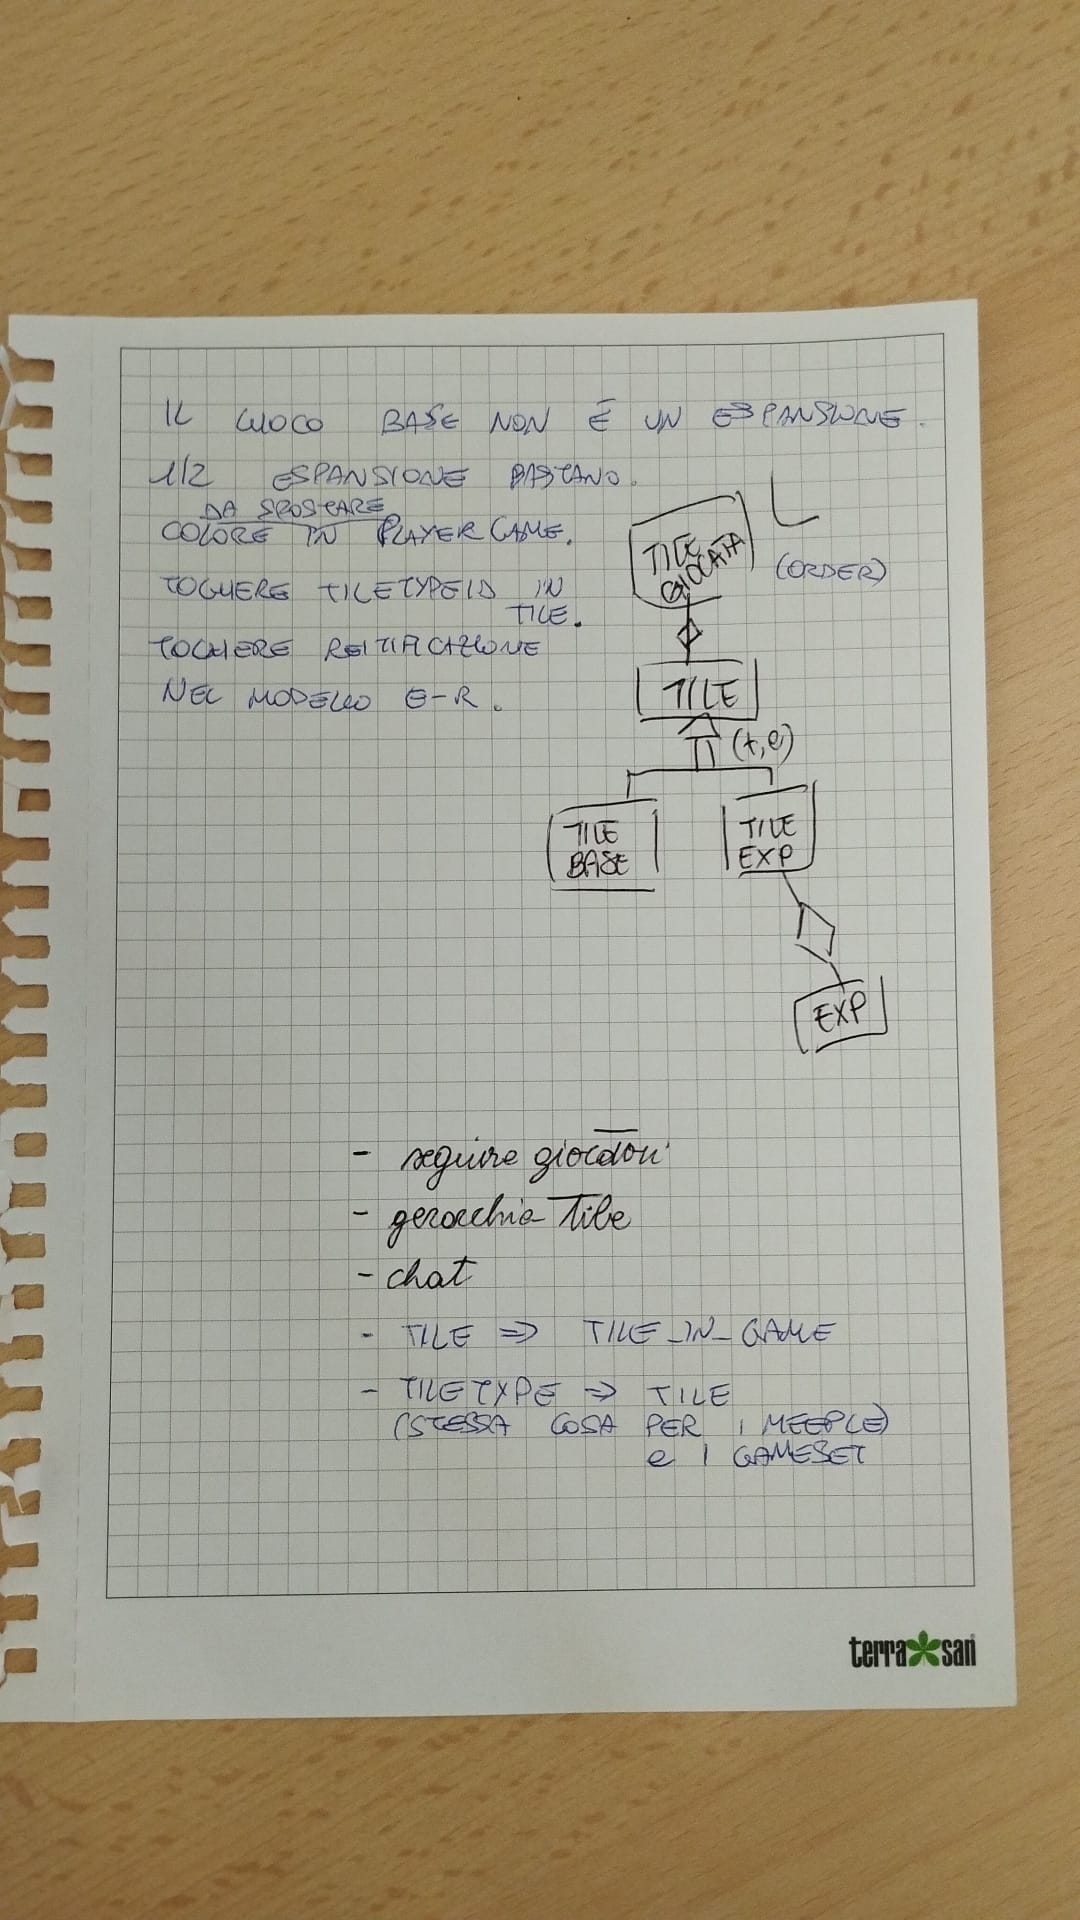 IL GIOCO BASE NON È UN ESPANSIONE.
1/2 ESPANSIONE BASTANO.
DA SPOSTARE
COLORE IN PLAYERGAME.
TOGLIERE TILETYPEID IN
TILE.
TOGLIERE REITIFICAZIONE
NEL MODELLO E-R.
TILE
GIOCATA
(ORDER)
TILE
(t,e)
TILE
BASE
TILE
EXP
EXP
- seguire giocatori
- gerarchia Tile
- chat
- TILE => TILE_IN_GAME
- TILETYPE => TILE
(STESSA COSA PER I MEEPLE)
e I GAMESET
terra san